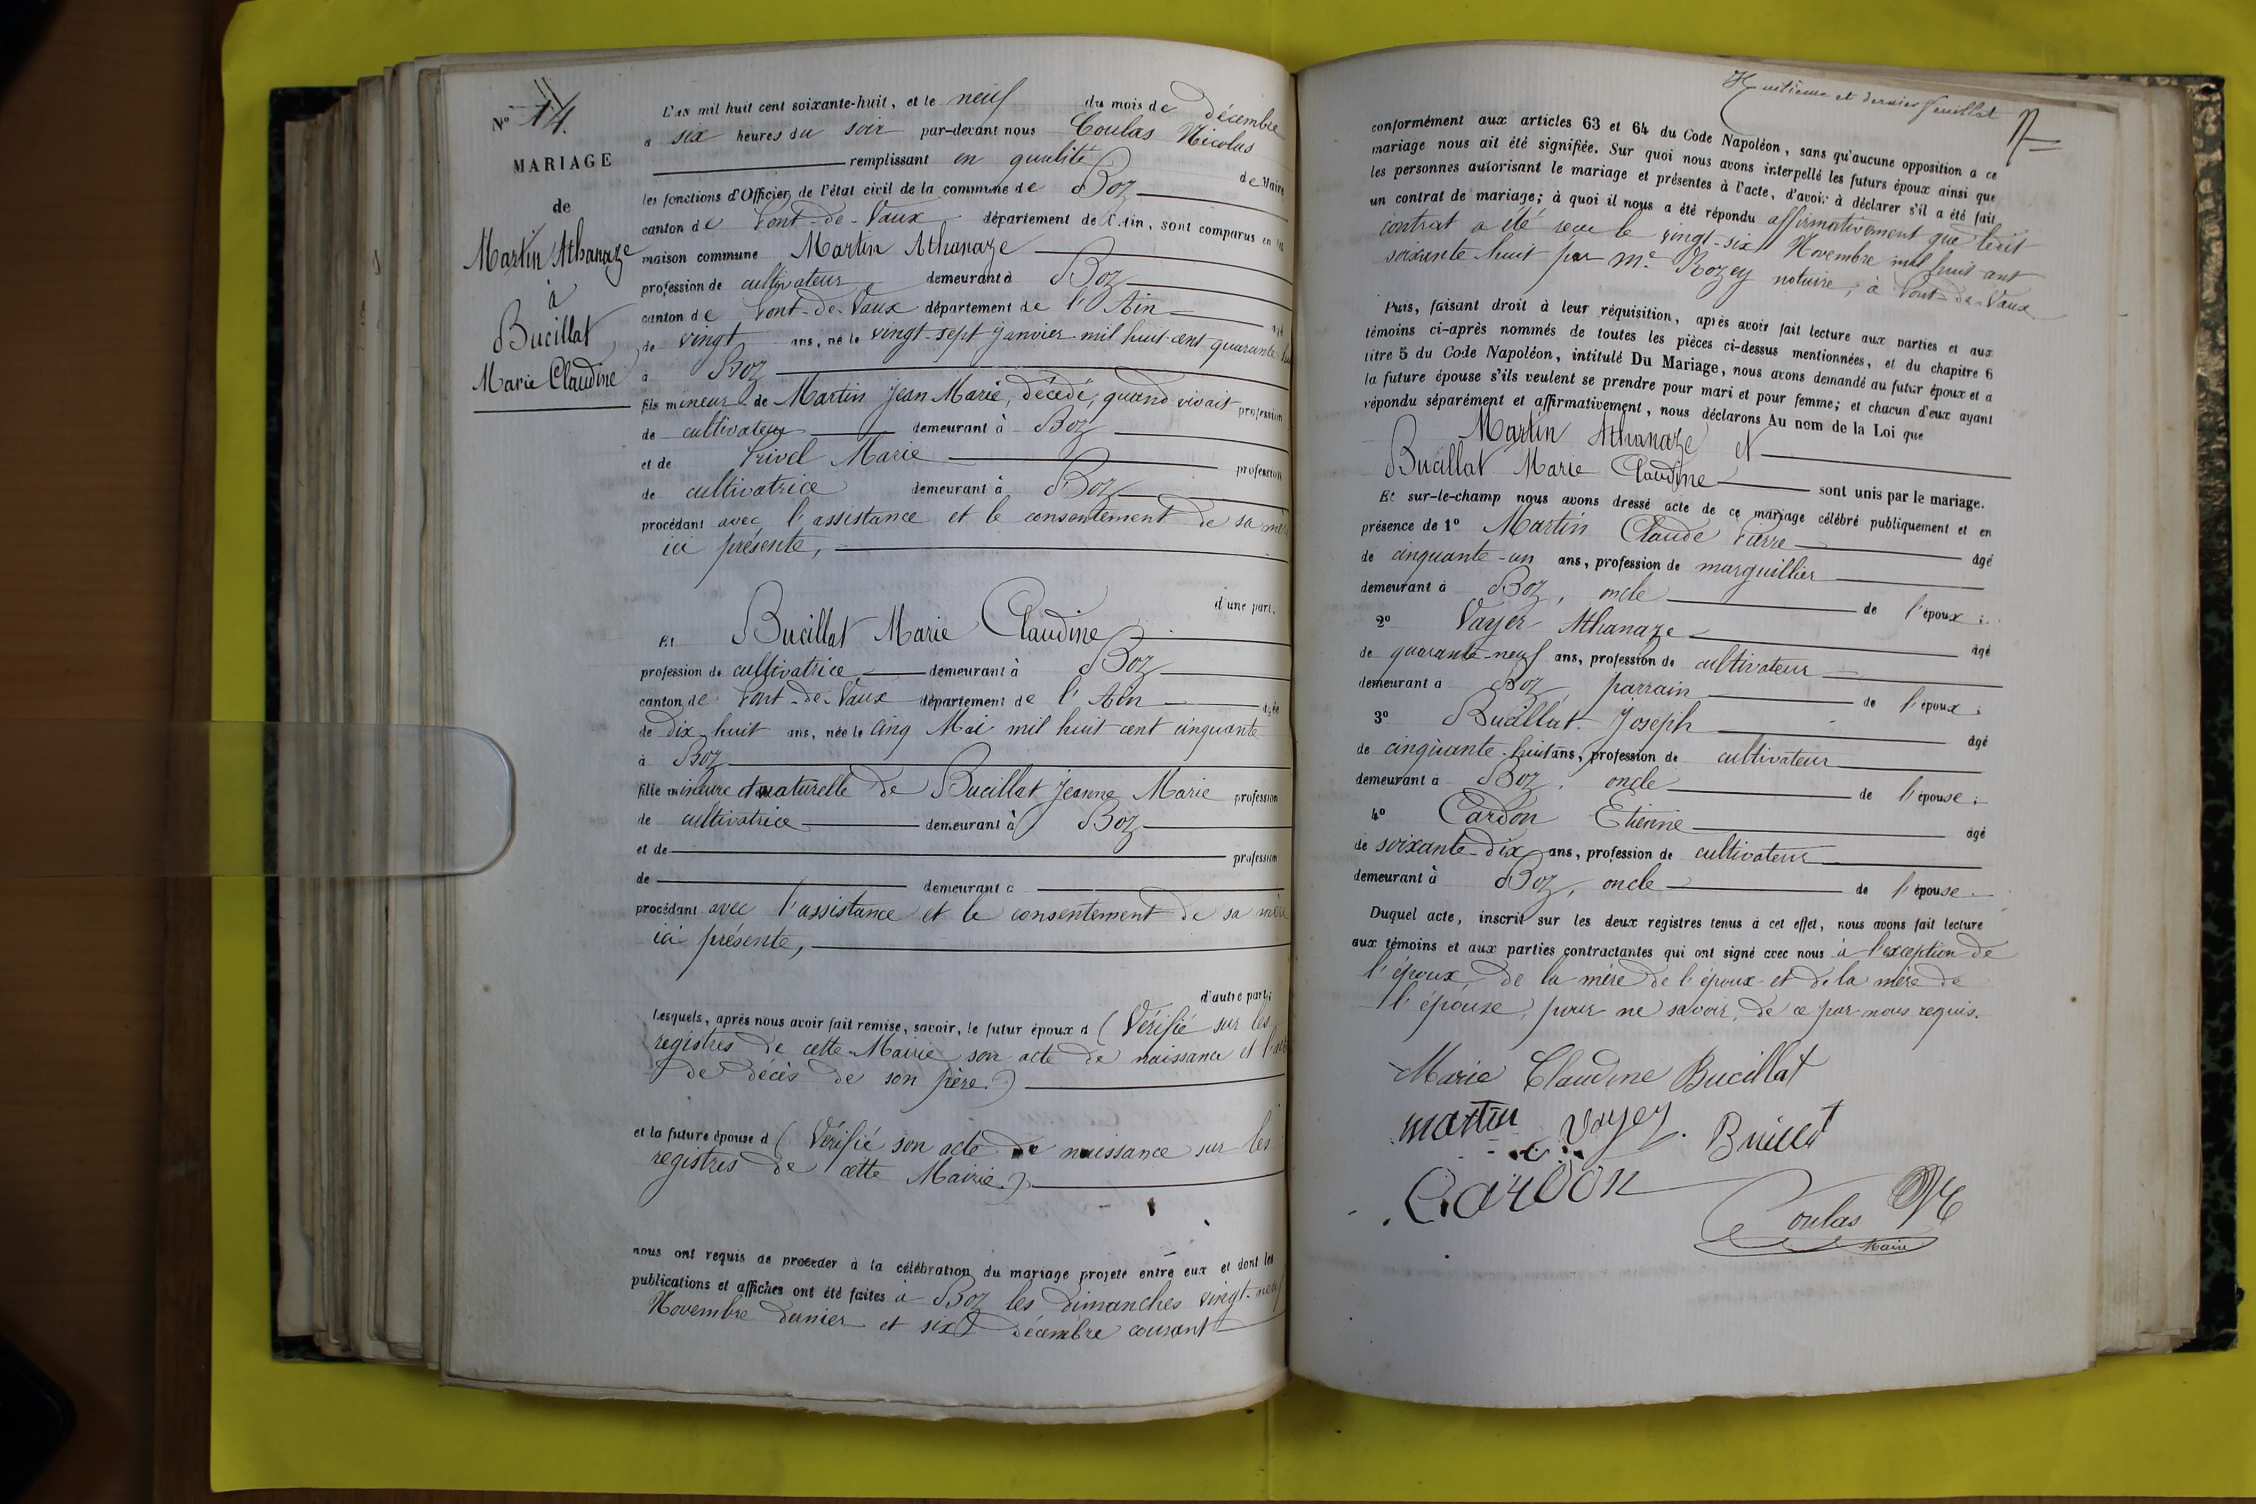 N° 14.
MARIAGE
de
Martin Athanaze
à
Bucillat
Marie Claudine
L'an mil huit cent soixante-huit, et le neuf du mois de décembre
à six heures du soir par-devant nous Coulas Nicolas
remplissant en qualité de Maire
les fonctions d'Officier de l'état civil de la commune de Boz
canton de Pont-de-Vaux département de l'Ain, sont comparus en la
maison commune Martin Athanaze
profession de cultivateur demeurant à Boz
canton de Pont-de-Vaux département de l'Ain âgé
de vingt ans, né le vingt-sept janvier mil huit cent quarante huit
à Boz
fils mineur de Martin Jean Marie, décédé, quand vivait profession
de cultivateur demeurant à Boz
et de Privel Marie profession
de cultivatrice demeurant à Boz
procédant avec l'assistance et le consentement de sa mère
ici présente,
d'une part,
Et Bucillat Marie Claudine
profession de cultivatrice demeurant à Boz
canton de Pont-de-Vaux département de l'Ain âgée
de dix huit ans, née le cinq Mai mil huit cent cinquante
à Boz
fille mineure et naturelle de Bucillat Jeanne Marie profession
de cultivatrice demeurant à Boz
et de profession
de demeurant à
procédant avec l'assistance et le consentement de sa mère
ici présente,
d'autre part;
Lesquels, après nous avoir fait remise, savoir, le futur époux d (Vérifié sur les
registres de cette Mairie son acte de naissance et l'acte
de décès de son père.)
et la future épouse d (Vérifié son acte de naissance sur les
registres de cette Mairie.)
nous ont requis de procéder à la célébration du mariage projeté entre eux et dont les
publications et affiches ont été faites à Boz les dimanches vingt-neuf
Novembre dernier et six décembre courant
Huitième et dernier feuillet
conformément aux articles 63 et 64 du Code Napoléon, sans qu'aucune opposition à ce
mariage nous ait été signifiée. Sur quoi nous avons interpellé les futurs époux ainsi que
les personnes autorisant le mariage et présentes à l'acte, d'avoir à déclarer s'il a été fait
un contrat de mariage; à quoi il nous a été répondu affirmativement que ledit
contrat a été reçu le vingt-six Novembre mil huit cent
soixante huit par Me Rozey notaire, à Pont-de-Vaux
Puis, faisant droit à leur réquisition, après avoir fait lecture aux parties et aux
témoins ci-après nommés de toutes les pièces ci-dessus mentionnées, et du chapitre 6
titre 5 du Code Napoléon, intitulé Du Mariage, nous avons demandé au futur époux et à
la future épouse s'ils veulent se prendre pour mari et pour femme; et chacun d'eux ayant
répondu séparément et affirmativement, nous déclarons Au nom de la Loi que
Martin Athanaze et
Bucillat Marie Claudine sont unis par le mariage.
Et sur-le-champ nous avons dressé acte de ce mariage célébré publiquement et en
présence de 1° Martin Claude Pierre âgé
de cinquante-un ans, profession de marguillier
demeurant à Boz, oncle de l'époux;
2° Vayer Athanaze âgé
de quarante-neuf ans, profession de cultivateur
demeurant à Boz, parrain de l'époux;
3° Bucillat Joseph âgé
de cinquante-huit ans, profession de cultivateur
demeurant à Boz, oncle de l'épouse;
4° Cardon Etienne âgé
de soixante-dix ans, profession de cultivateur
demeurant à Boz, oncle de l'épouse.
Duquel acte, inscrit sur les deux registres tenus à cet effet, nous avons fait lecture
aux témoins et aux parties contractantes qui ont signé avec nous à l'exception de
l'époux, de la mère de l'époux et de la mère de
l'épouse, pour ne savoir, de ce par nous requis.
Marie Claudine Bucillat
martin Vayer Bucillat
Cardon
Coulas
Maire